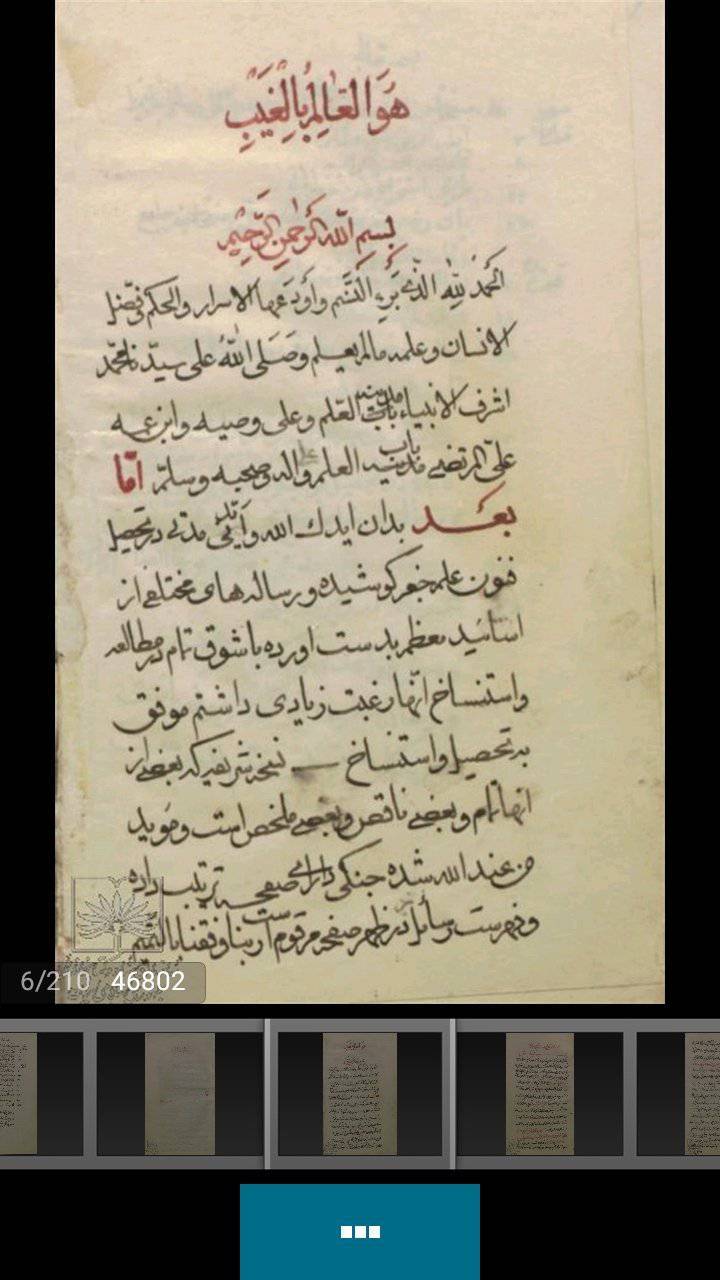 هُوَ العَالِمُ بِالْغَيْبِ
بسم الله الرحمن الرحيم
الحمد لله الذى برء النسم واودعها الاسرار والحكم فضل
الانسان وعلمه مالم يعلم وصلى الله على سيدنا محمد
اشرف الانبياء مدينه العلم وعلى وصيه وابن عمه
على المرتضى باب مدينه العلم واله وصحبه وسلم امّا
بعد بدان ايدك الله وايانا مدتى در تحصيل
فنون علم جفر كوشيده و رساله هاى مختلفه از
اساتيد معظم بدست اورده با شوق تمام در مطالعه
واستنساخ انها رغبت زيادى داشتم موفق
به تحصيل واستنساخ نسخ شريفه كه بعضى از
انها تمام وبعضى ناقص وبعضى ملخص است ومويد
من عند الله شده جنكى داراى صفحه ترتيب داده
وفهرست رسائل در ظهر صفحه مرقوم است ربنا وفقنا بالتتميم
6/210 46802